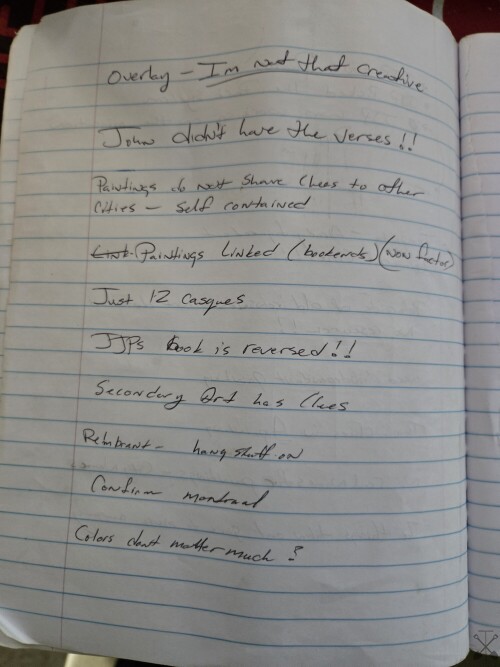 Overlay - I'm not that creative
John didn't have the verses!!
Paintings do not share Clues to other
Cities - self contained
Paintings Linked (bookends) (wow factor)
Just 12 Casques
JJPs book is reversed!!
Secondary Art has Clues
Rembrant - hang stuff on
Confirm montreal
Colors don't matter much?